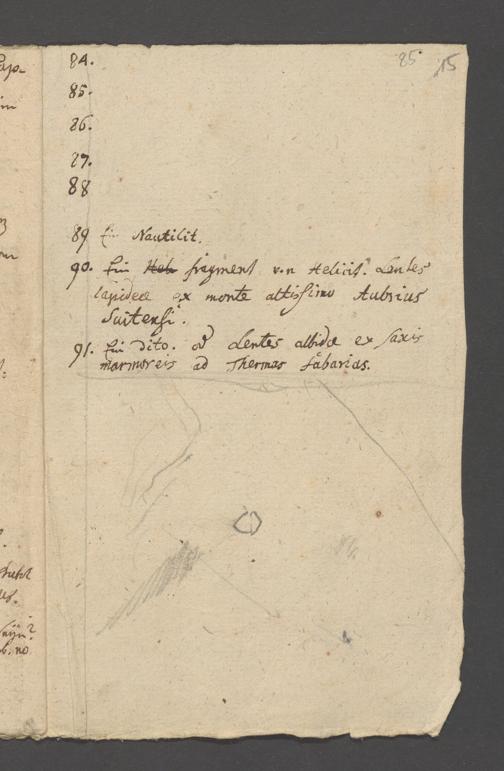 85 15
84.
85.
86.
87.
88
89 Ein Nautilit.
90. Ein fragment von Helicit. Lentes
lapideæ ex monte altissimo Aubrius
Suitensi.
91. Ein dito. Lentes albidæ ex saxis
marmoreis ad Thermas fabarias.